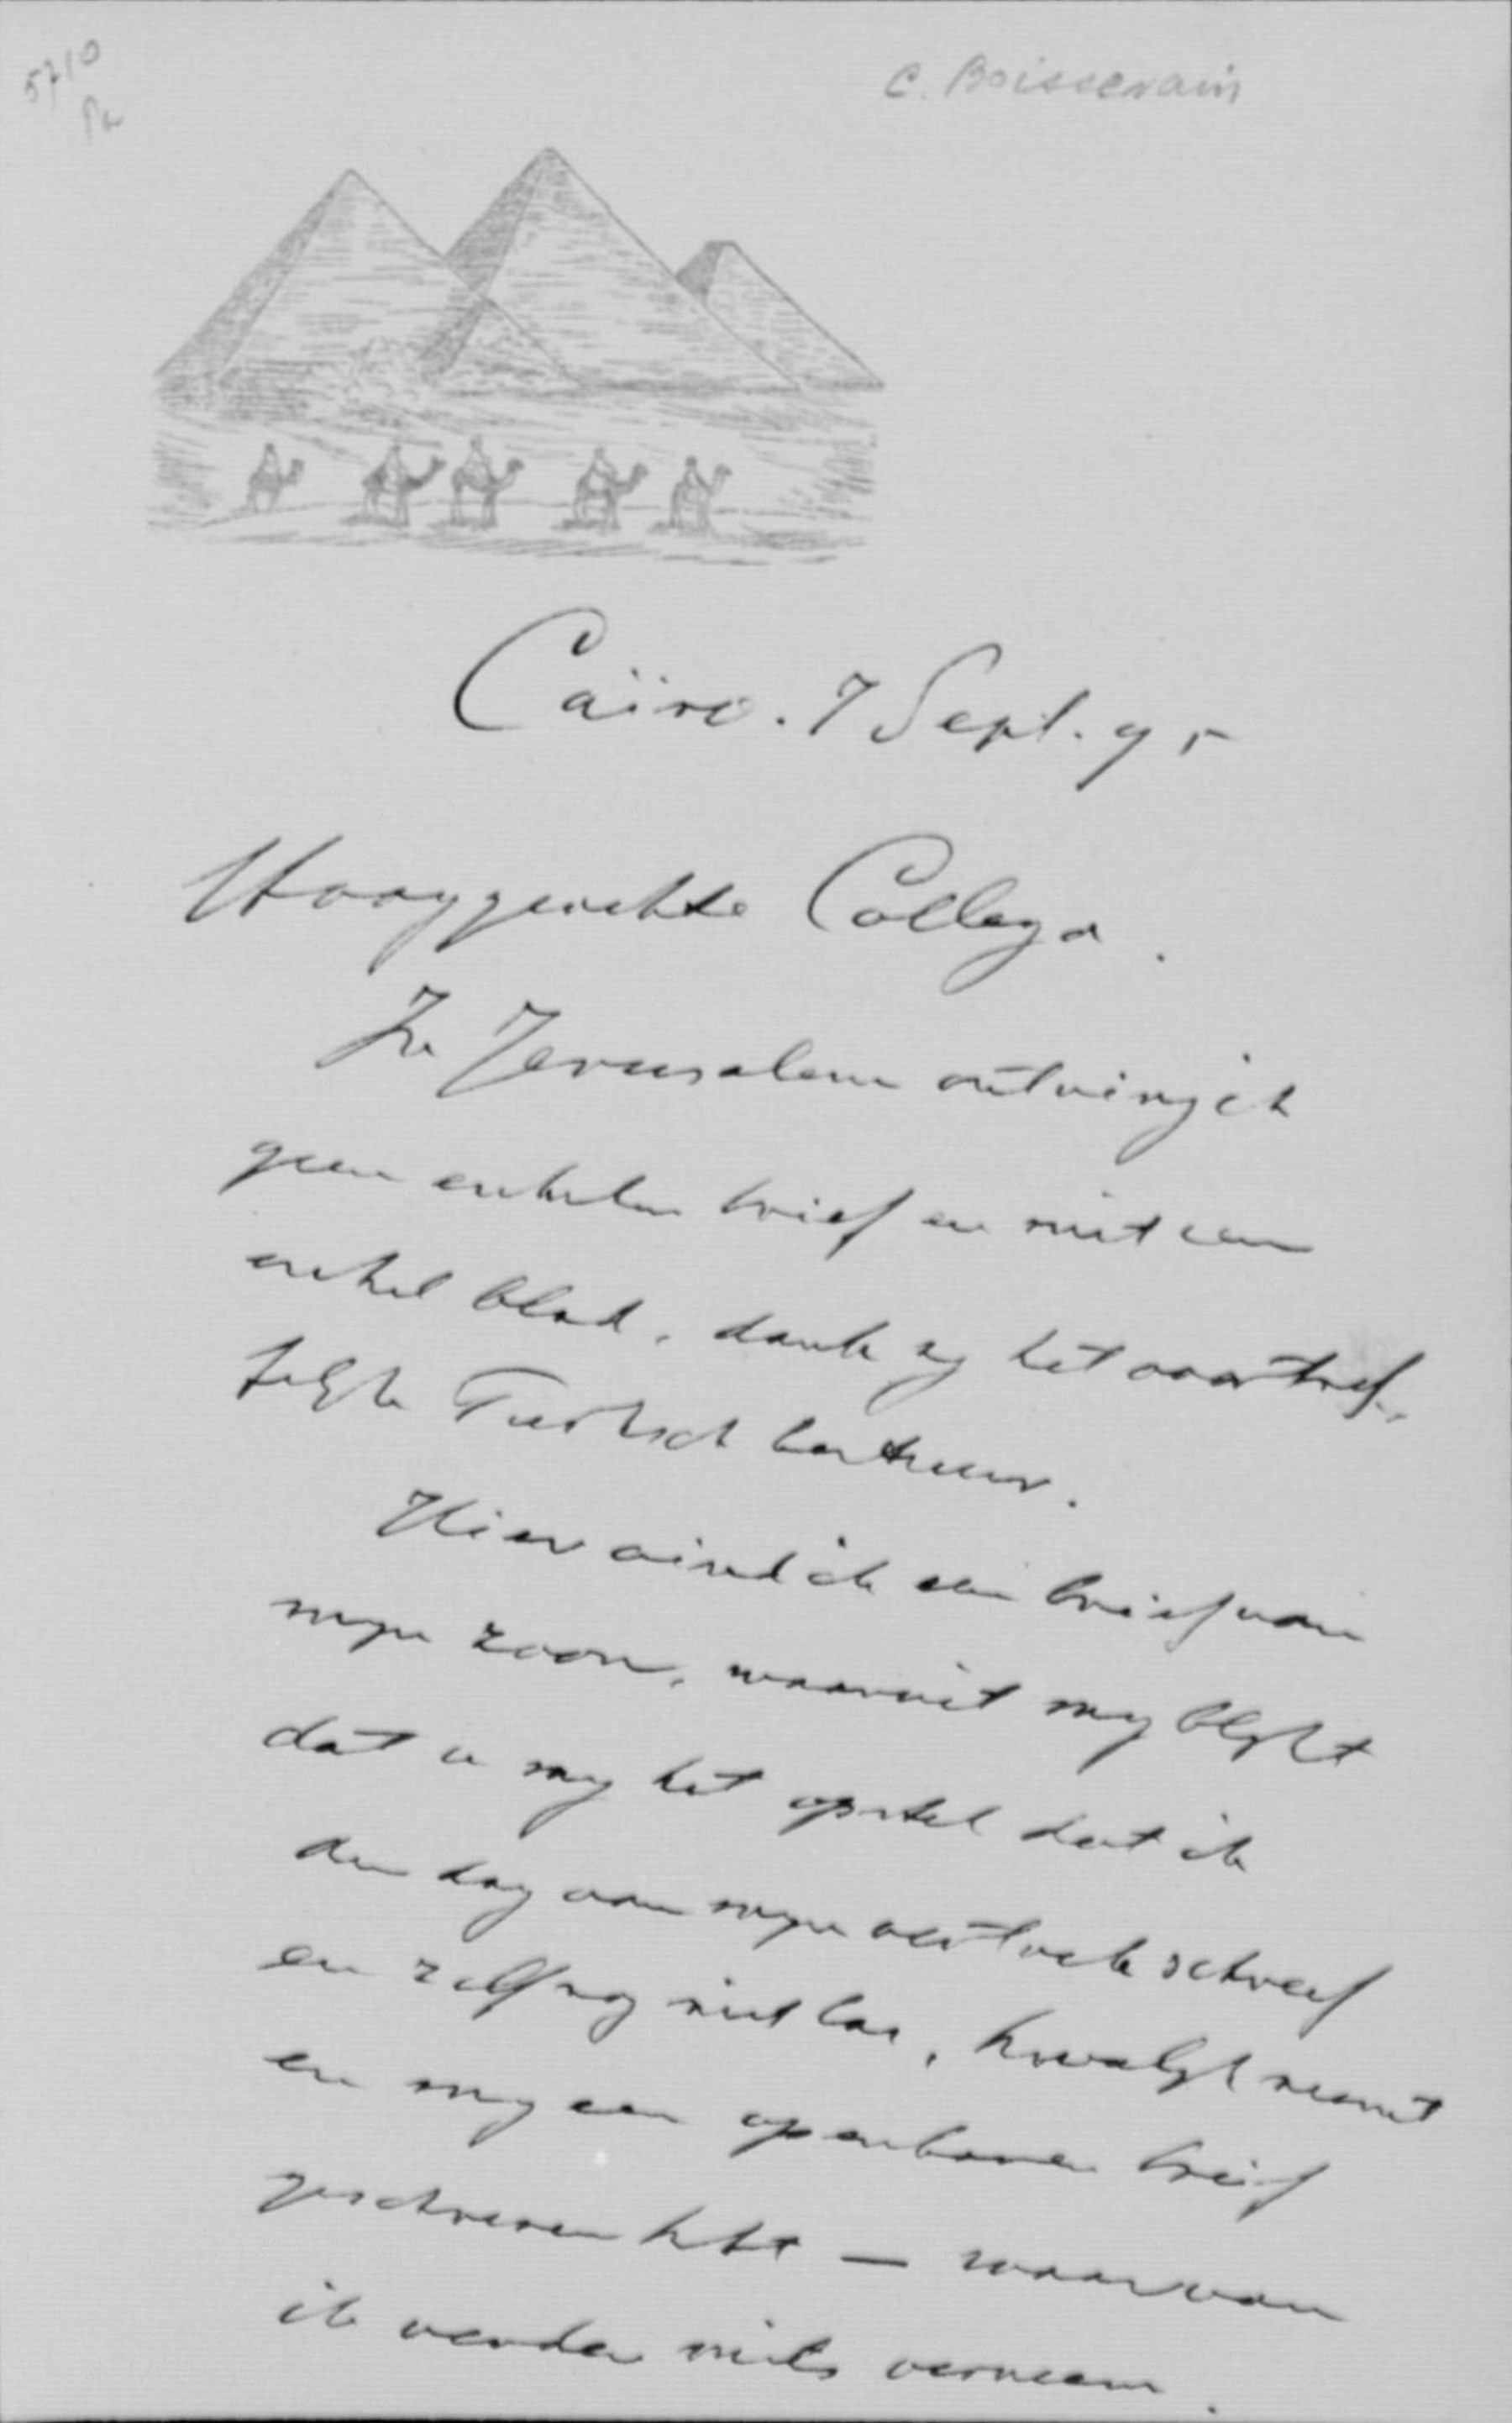 5710
C. Boissevain
Caïro. 7 Sept. 95
Hooggeachte Collega.
In Jerusalem ontving ik
geen enkelen brief en niet een
enkel blad, dank zy het voortref-
felyke Turksch bestuur.
Hier vind ik een brief van
myn zoon, waaruit my blykt
dat u my het opstel dat ik
den dag van myn vertrek schreef
en zelf nog niet las, kwalyk neemt
en my een openbaren brief
geschreven hebt — waarvan
ik verder niets verneem.